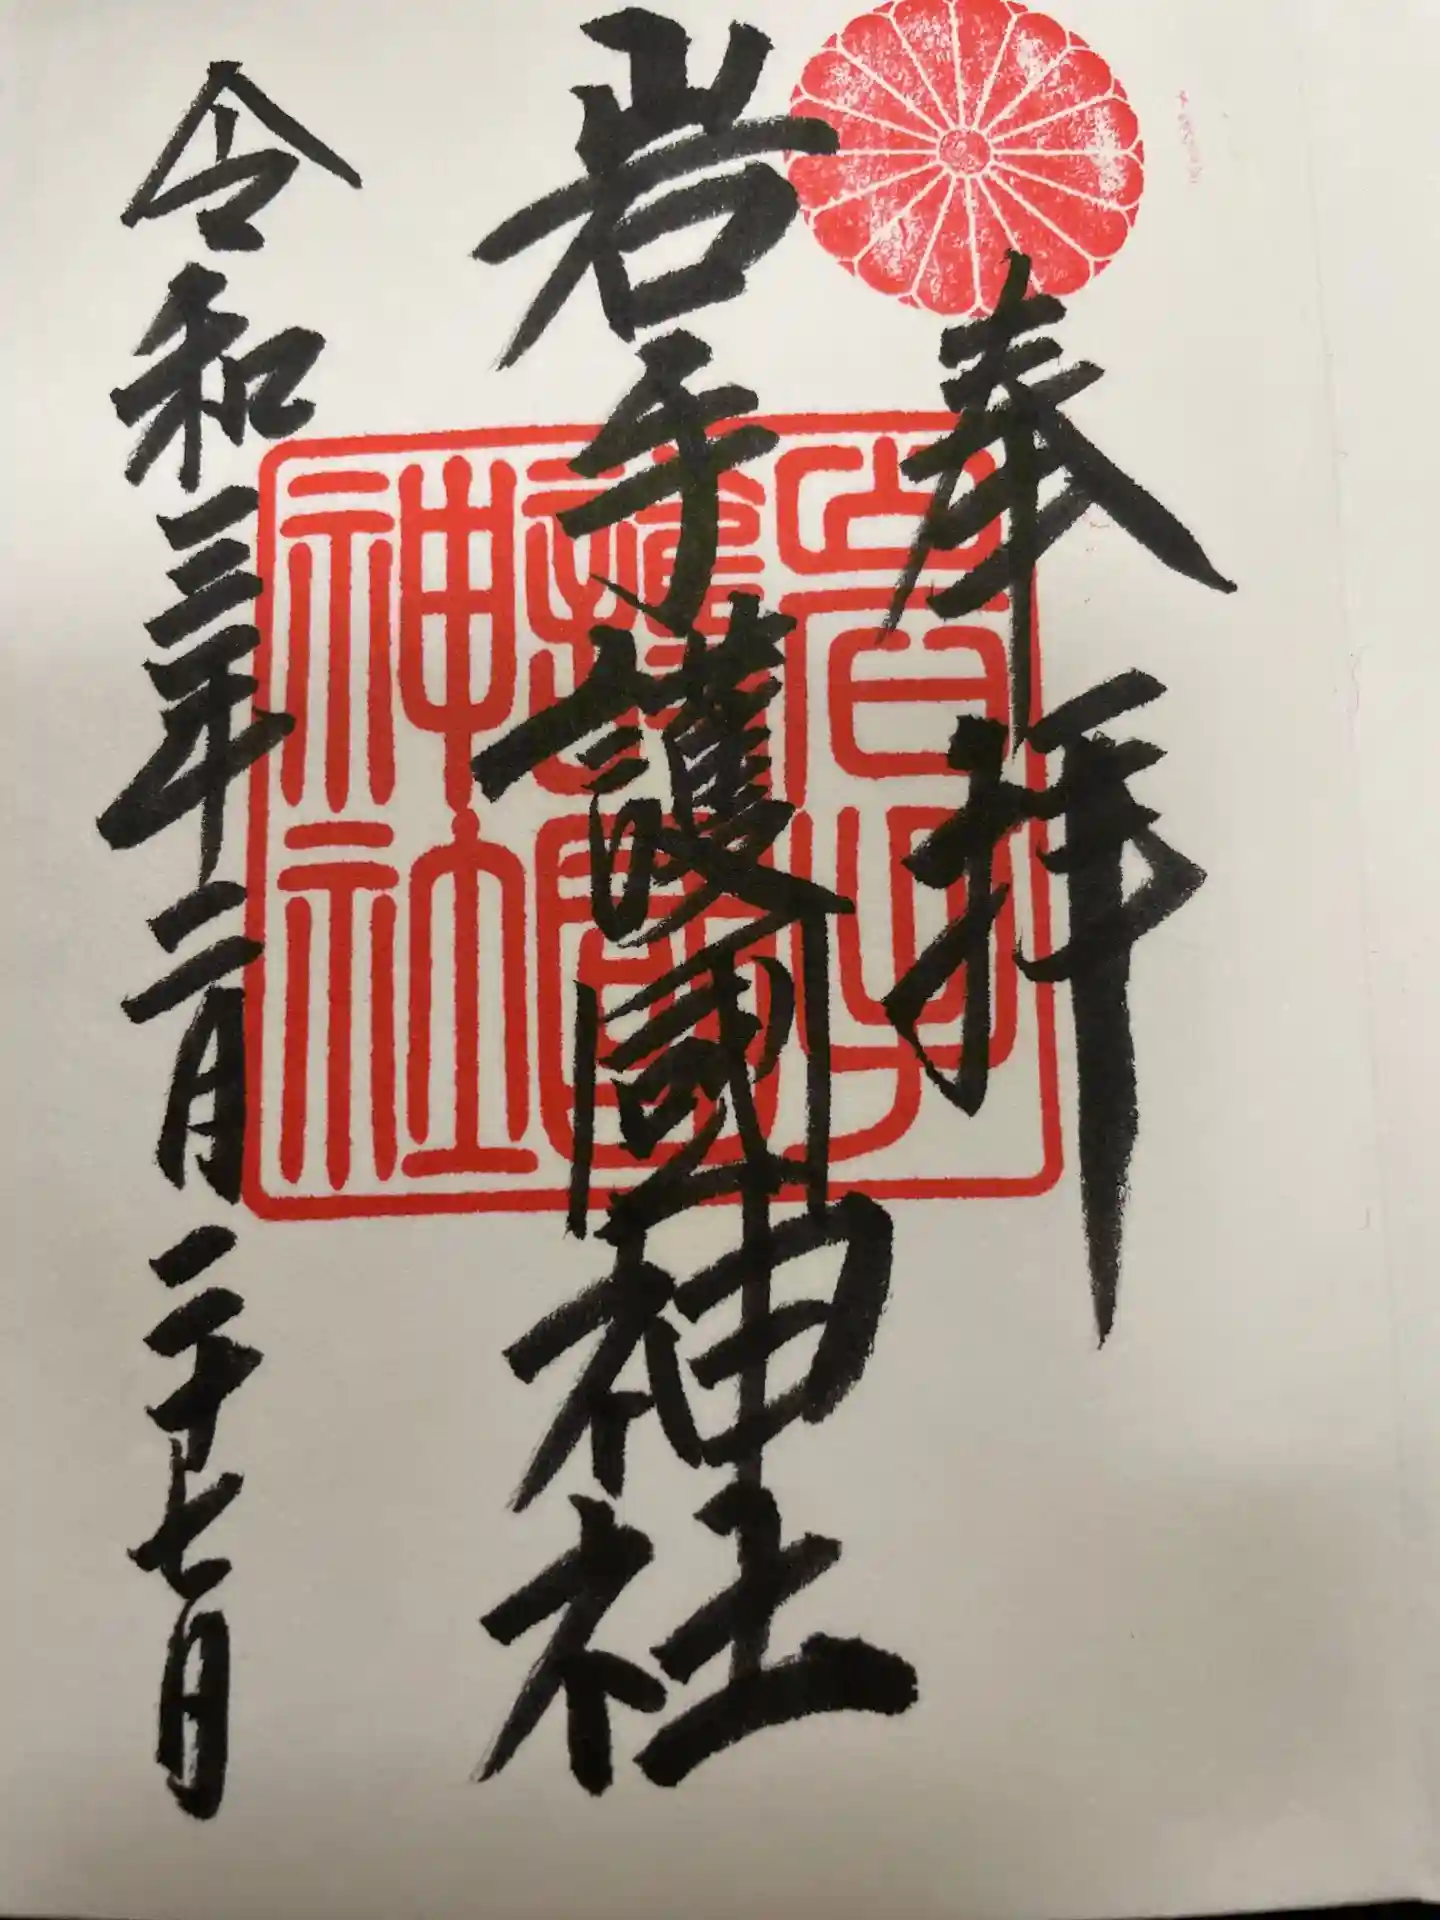 奉拝
岩手護國神社
岩手護國神社
令和三年二月二十七日